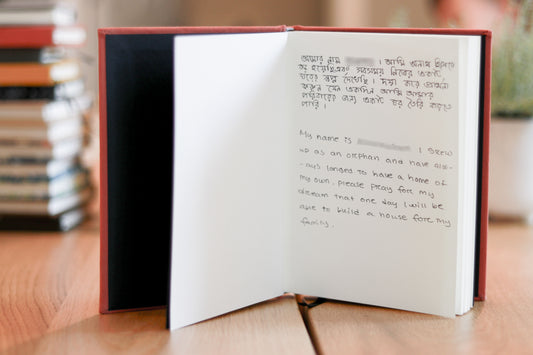 আমার নাম । আমি অনাথ হিসেবে
বড় হয়েছি এবং সবসময় নিজের একটা
ঘরের স্বপ্ন দেখেছি। দয়া করে প্রার্থনা
করুন যেন একদিন, আমি আমার
পরিবারের জন্য একটি ঘর তৈরি করতে
পারি।
My name is . I grew
up as an orphan and have alw-
-ays longed to have a home of
my own, please pray for my
dream that one day I will be
able to build a house fore my
family.